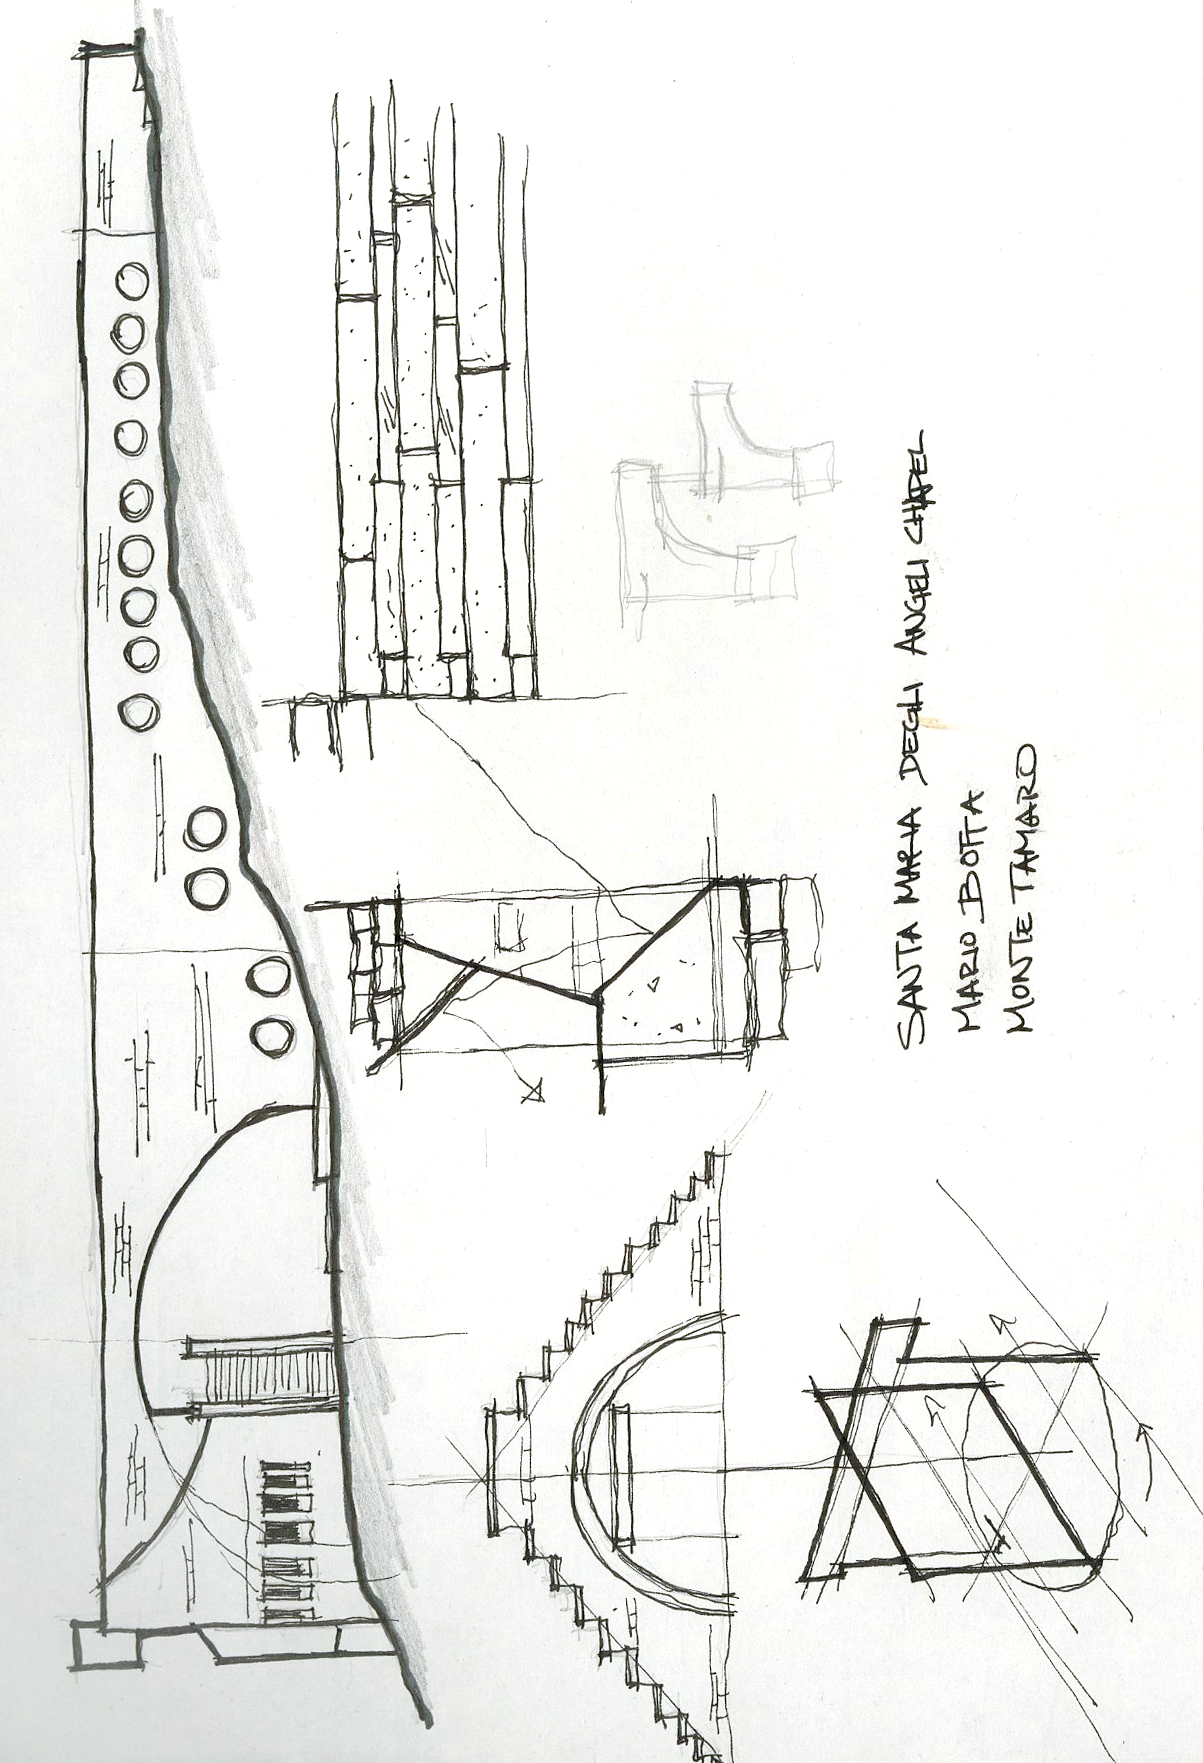 SANTA MARIA DEGLI ANGELI CHAPEL
MARIO BOTTA
MONTE TAMARO